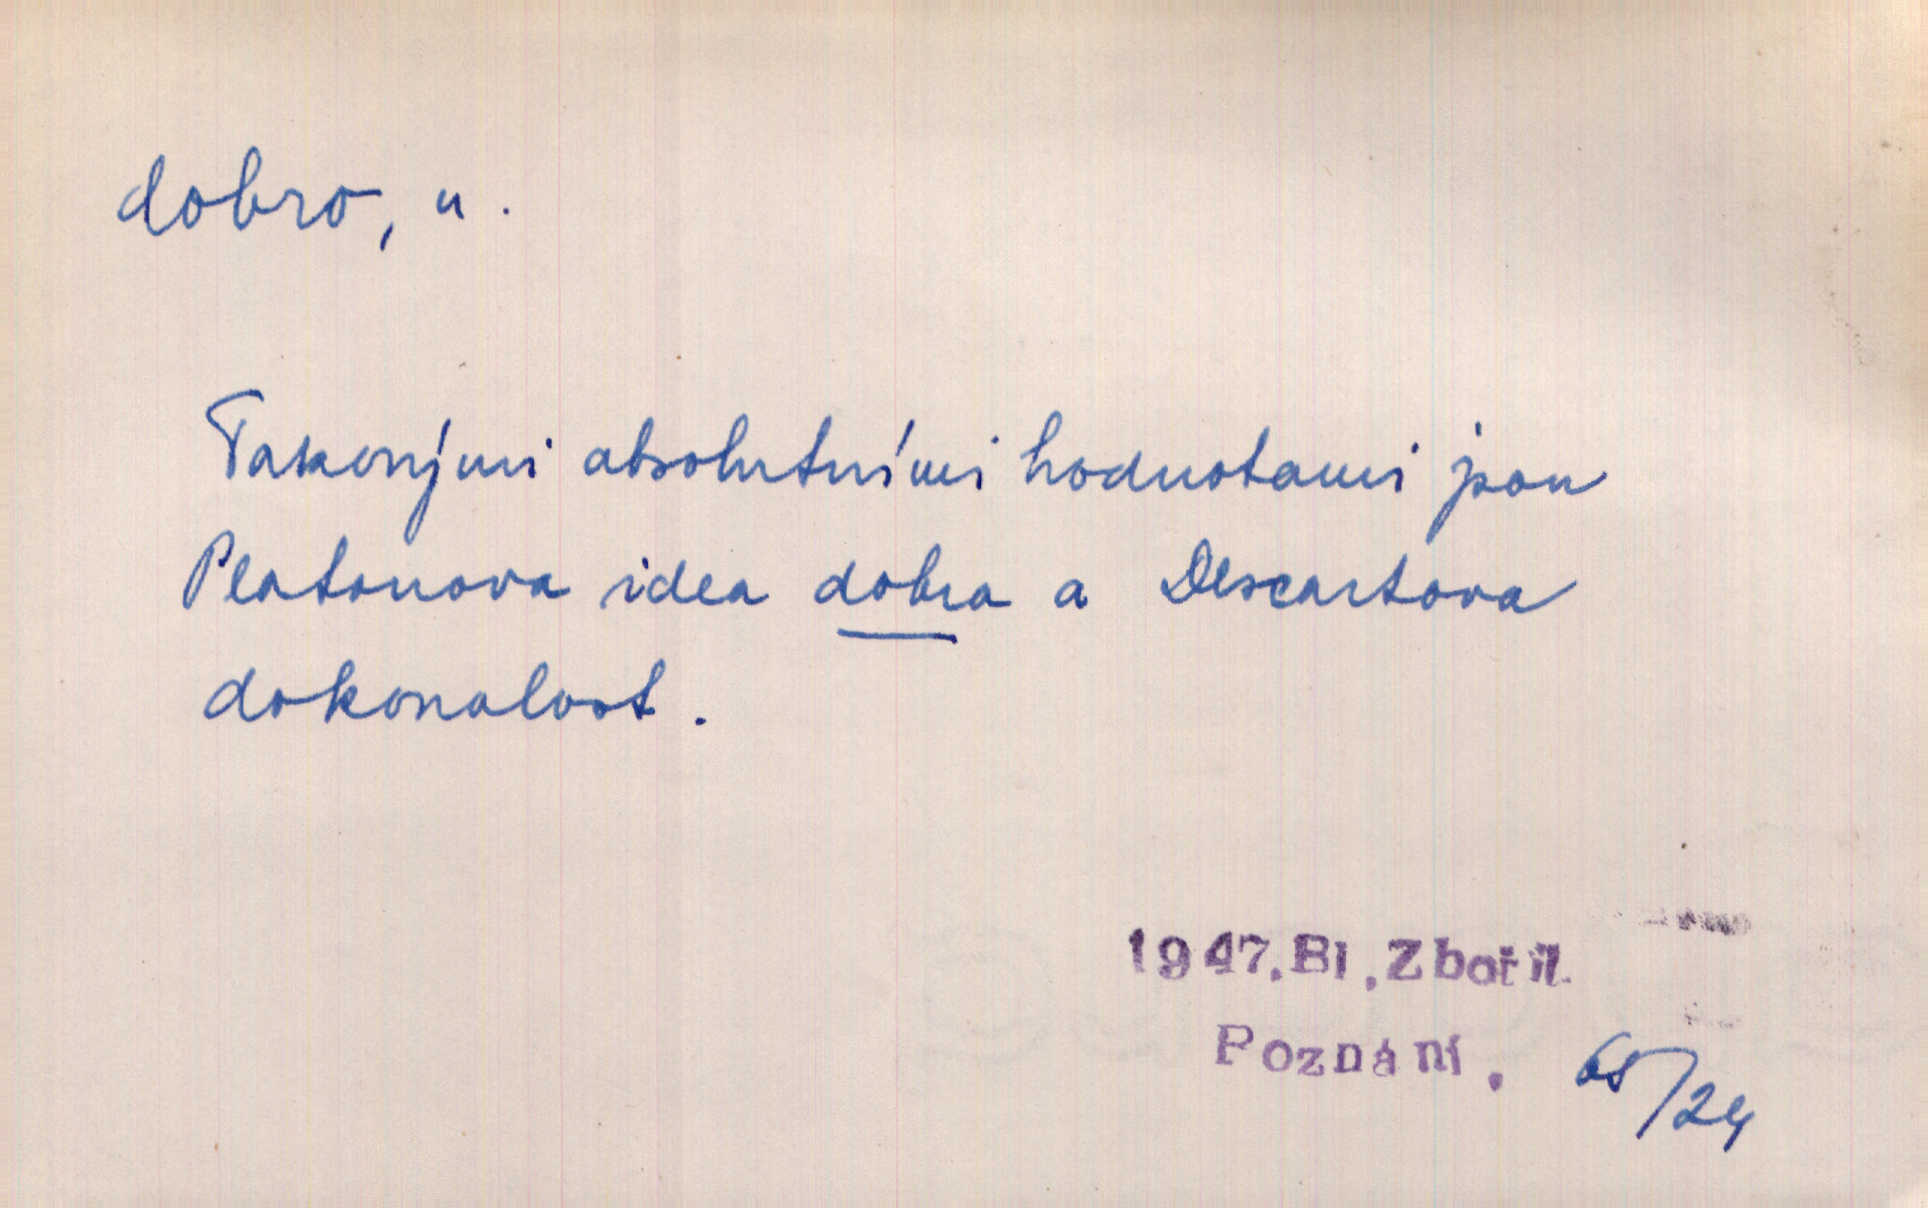 dobro, n.
Takovými absolutními hodnotami jsou
Platonova idea dobra a Descartova
dokonalost.
1947. Bl. Zbořil.
Poznání. 68/24